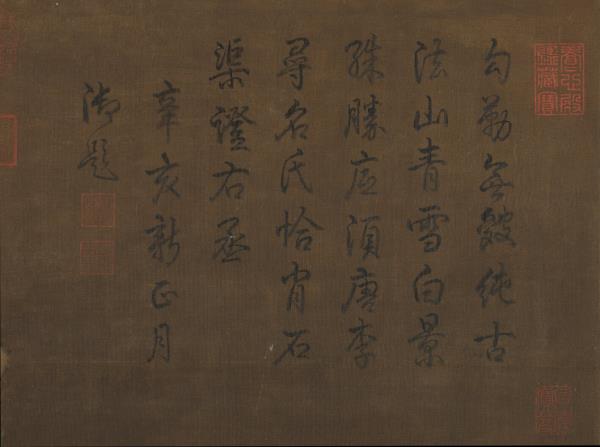 勾勒無皴純古
法山青雪白景
殊勝底須唐李
尋名氏恰肖石
渠證右丞
辛亥新正月
御題
養心殿鑑藏寶